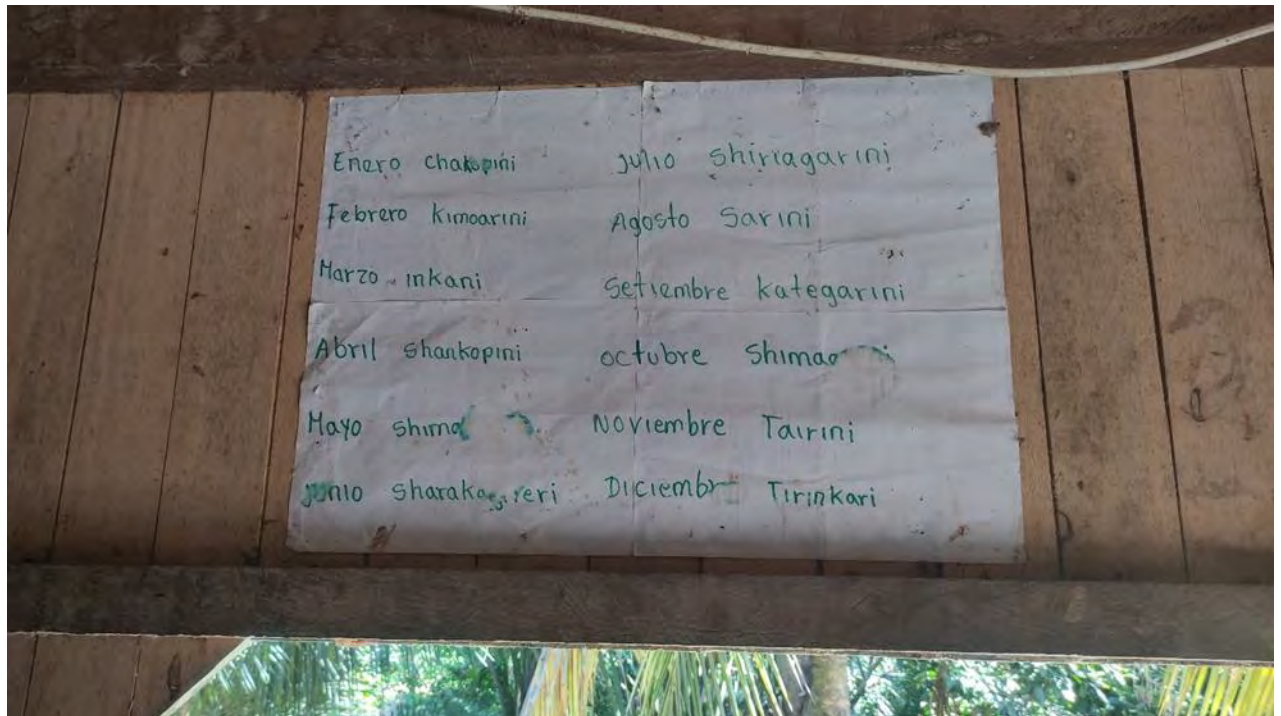 Enero chakopini
Febrero kimoarini
Marzo inkani
Abril shankopini
Mayo
junio
julio shiriagarini
Agosto sarini
setiembre kategarini
octubre
Noviembre Tairini
Diciembr Tirinkari